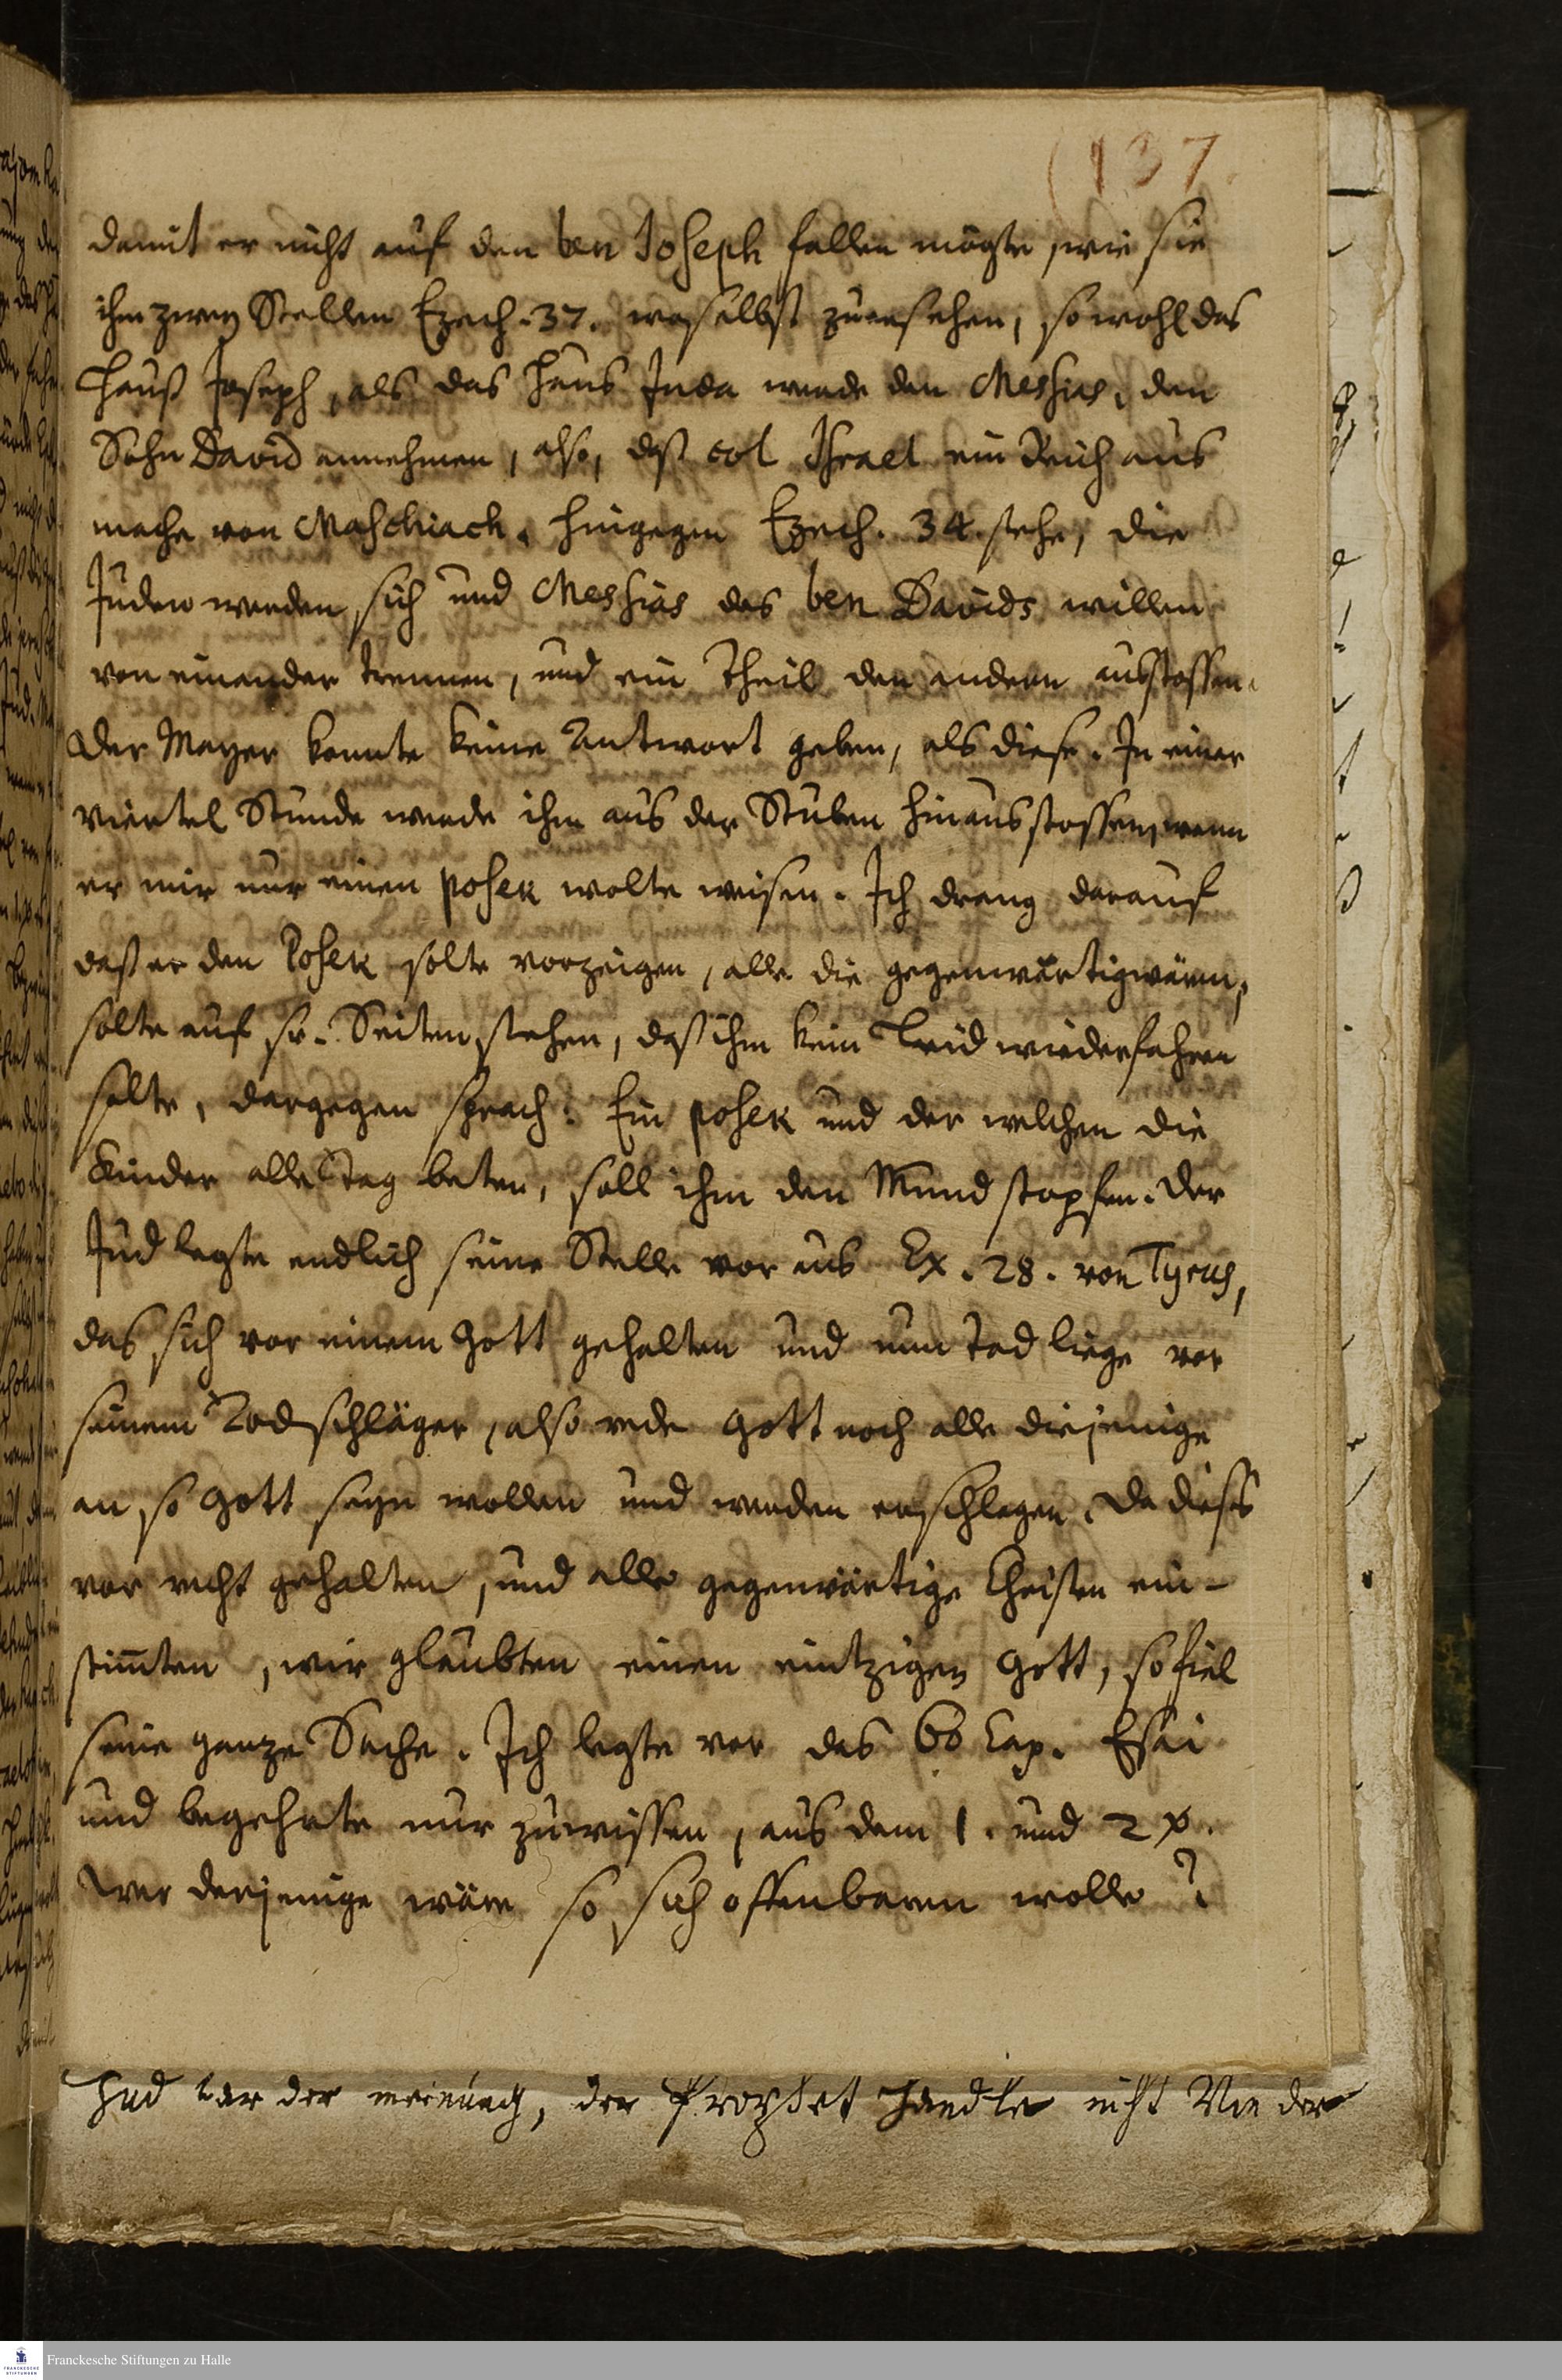 (137.
damit er nicht auf den ben Joseph fallen mögte, wie sie
ihm zwey Stellen Ezech. 37. woselbst zuersehen, sowohl das
Hauß Joseph, als das Haus Juda werde den Messias, den
Sohn David annehmen, also, daß col Jsrael ein Reich aus
mache von Maschiach. hingegen Ezech. 34. stehe, die
Juden werden sich und Messias des ben Davids willen
von einander trennen, und ein Theil den andern ausstossen.
der Mayer konnte keine Antwort geben, als diese. In einer
viertel Stunde werde ihn aus der Stuben hinausstossen, wenn
er mir nur einen posek wolte weisen. Ich drang darauf
daß er den Posek solte vorzeigen, alle die gegenwärtig wären,
solte auf sr. Seiten stehen, daß ihm kein Leid wiederfahren
solte, dargegen sprach: Ein posek und der welchen die
Kinder alle Tag beten, soll ihm den Mund stopfen. Der
Jud legte endlich seine Stelle vor aus Ex. 28. von Tyrus,
das sich vor einem Gott gehalten und nun Tod liege vor
seinem Todschläger, also rede Gott noch alle diejenige
an, so Gott seyn wollen und werden erschlagen. Da dieses
vor recht gehalten, und alle gegenwärtige Christen ein-
stim̄ten, wir glaubten einen eintzigen Gott, so fiel
seine ganze Sache. Ich legte vor das 60 Cap. Esai
und begehrte nur zuwissen, aus dem 1. und 2
Wer derjenige wäre so sich offenbaren wolle?
Jud war der meinung, der Prophet handle nicht Von der
Franckesche Stiftungen zu Halle